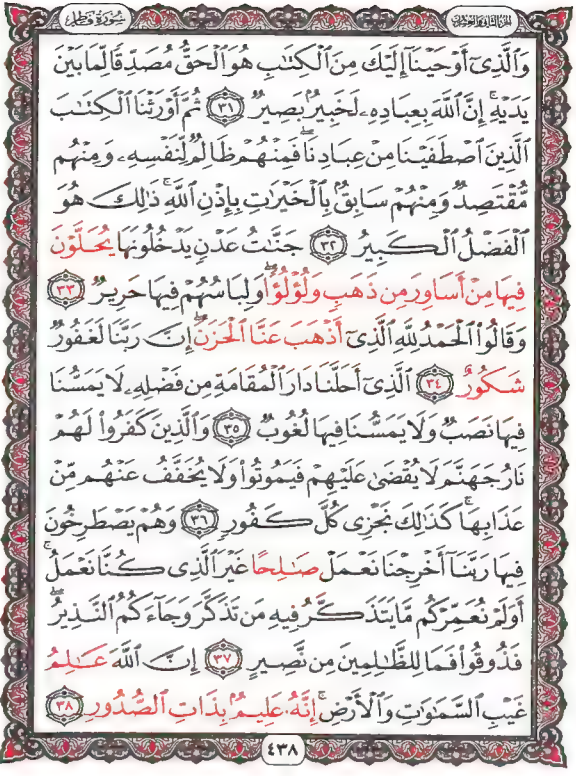 سُورَةُ فَاطِر
الجزء الثاني والعشرون
وَٱلَّذِىٓ أَوْحَيْنَآ إِلَيْكَ مِنَ ٱلْكِتَٰبِ هُوَ ٱلْحَقُّ مُصَدِّقًا لِّمَا بَيْنَ
يَدَيْهِ ۗ إِنَّ ٱللَّهَ بِعِبَادِهِۦ لَخَبِيرٌۢ بَصِيرٌ ٣١ ثُمَّ أَوْرَثْنَا ٱلْكِتَٰبَ
ٱلَّذِينَ ٱصْطَفَيْنَا مِنْ عِبَادِنَا ۖ فَمِنْهُمْ ظَالِمٌ لِّنَفْسِهِۦ وَمِنْهُم
مُّقْتَصِدٌ وَمِنْهُمْ سَابِقٌۢ بِٱلْخَيْرَٰتِ بِإِذْنِ ٱللَّهِ ۚ ذَٰلِكَ هُوَ
ٱلْفَضْلُ ٱلْكَبِيرُ ٣٢ جَنَّٰتُ عَدْنٍ يَدْخُلُونَهَا يُحَلَّوْنَ
فِيهَا مِنْ أَسَاوِرَ مِن ذَهَبٍ وَلُؤْلُؤًا ۖ وَلِبَاسُهُمْ فِيهَا حَرِيرٌ ٣٣
وَقَالُوا۟ ٱلْحَمْدُ لِلَّهِ ٱلَّذِىٓ أَذْهَبَ عَنَّا ٱلْحَزَنَ ۖ إِنَّ رَبَّنَا لَغَفُورٌ
شَكُورٌ ٣٤ ٱلَّذِىٓ أَحَلَّنَا دَارَ ٱلْمُقَامَةِ مِن فَضْلِهِۦ لَا يَمَسُّنَا
فِيهَا نَصَبٌ وَلَا يَمَسُّنَا فِيهَا لُغُوبٌ ٣٥ وَٱلَّذِينَ كَفَرُوا۟ لَهُمْ
نَارُ جَهَنَّمَ لَا يُقْضَىٰ عَلَيْهِمْ فَيَمُوتُوا۟ وَلَا يُخَفَّفُ عَنْهُم مِّنْ
عَذَابِهَا ۚ كَذَٰلِكَ نَجْزِى كُلَّ كَفُورٍ ٣٦ وَهُمْ يَصْطَرِخُونَ
فِيهَا رَبَّنَآ أَخْرِجْنَا نَعْمَلْ صَٰلِحًا غَيْرَ ٱلَّذِى كُنَّا نَعْمَلُ ۚ
أَوَلَمْ نُعَمِّرْكُم مَّا يَتَذَكَّرُ فِيهِ مَن تَذَكَّرَ وَجَآءَكُمُ ٱلنَّذِيرُ ۖ
فَذُوقُوا۟ فَمَا لِلظَّٰلِمِينَ مِن نَّصِيرٍ ٣٧ إِنَّ ٱللَّهَ عَٰلِمُ
غَيْبِ ٱلسَّمَٰوَٰتِ وَٱلْأَرْضِ ۚ إِنَّهُۥ عَلِيمٌۢ بِذَاتِ ٱلصُّدُورِ ٣٨
٤٣٨